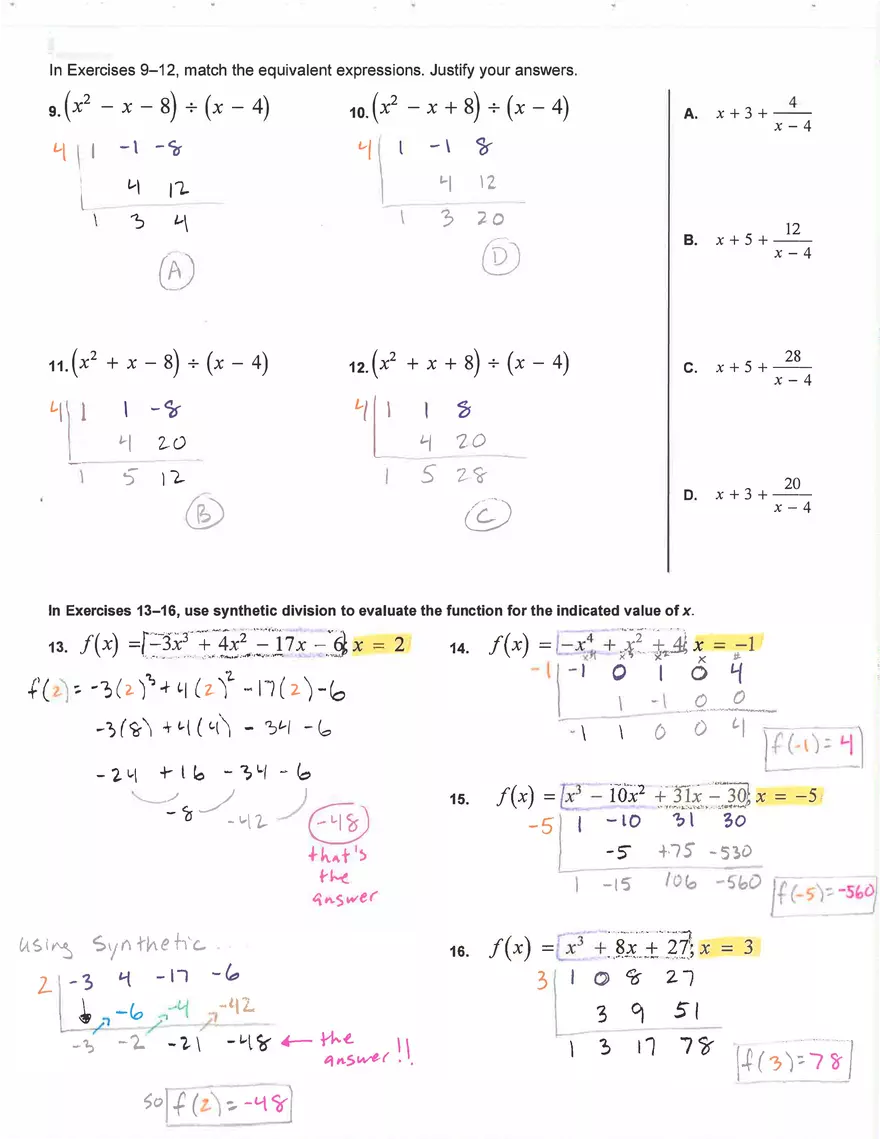 In Exercises 9–12, match the equivalent expressions. Justify your answers.
9. (x² − x − 8) ÷ (x − 4)
4 | 1 -1 -8
4 12
1 3 4
A
10. (x² − x + 8) ÷ (x − 4)
4 | 1 -1 8
4 12
1 3 20
D
11. (x² + x − 8) ÷ (x − 4)
4 | 1 1 -8
4 20
1 5 12
B
12. (x² + x + 8) ÷ (x − 4)
4 | 1 1 8
4 20
1 5 28
C
A. x + 3 + 4/(x − 4)
B. x + 5 + 12/(x − 4)
C. x + 5 + 28/(x − 4)
D. x + 3 + 20/(x − 4)
In Exercises 13–16, use synthetic division to evaluate the function for the indicated value of x.
13. f(x) = −3x³ + 4x² − 17x − 6; x = 2
f(2) = -3(2)³ + 4(2)² - 17(2) - 6
-3(8) + 4(4) - 34 - 6
-24 + 16 - 34 - 6
-8 -42 -48
that's
the
answer
using Synthetic ...
2 | -3 4 -17 -6
-6 -4 -42
-3 -2 -21 -48 ← the
answer!!
so f(2) = -48
14. f(x) = −x⁴ + x² + 4; x = −1
x⁴ x³ x² x #
-1 | -1 0 1 0 4
1 -1 0 0
-1 1 0 0 4
f(-1) = 4
15. f(x) = x³ − 10x² + 31x − 30; x = −5
-5 | 1 -10 31 30
-5 +75 -530
1 -15 106 -560
f(-5) = -560
16. f(x) = x³ + 8x + 27; x = 3
3 | 1 0 8 27
3 9 51
1 3 17 78
f(3) = 78